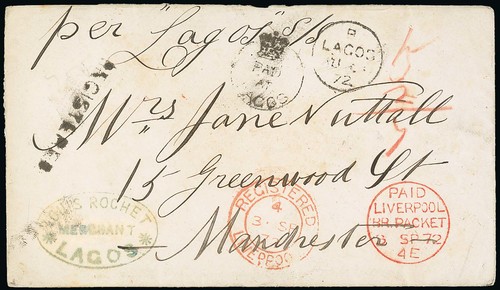 per "Lagos" s/s
PAID
AT
LAGOS
B
LAGOS
72
REGISTERED
Mrs Jane Nuttall
15 Greenwood St
Manchester
LOUIS ROCHET
MERCHANT
LAGOS
REGISTERED
4
3 SP
LIVERPOOL
PAID
LIVERPOOL
BR. PACKET
3 SP 72
4E